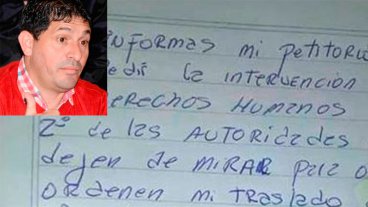 INFORMAS mi petitorio
edir la intervención
erechos Humanos
2º de las AUTORidades
dejen de MIRAR para o
ORDENEN mi TRASlado